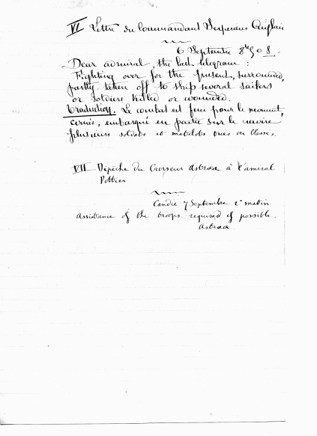 VI Lettre du Commandant Supérieur Anglais
6 Septembre
Dear admiral, the tel. telegram:
Fighting over for the present, surrounded,
partly taken off to ship several sailors
or soldiers killed or wounded.
Traduction. Le combat est fini pour le moment,
cernés, embarqué en partie sur le navire
plusieurs soldats et matelots tués ou blessés.
VII Dépêche du Croiseur à l'amiral
Pottier
Candie 7 Septembre matin
Assistance of the troops required if possible